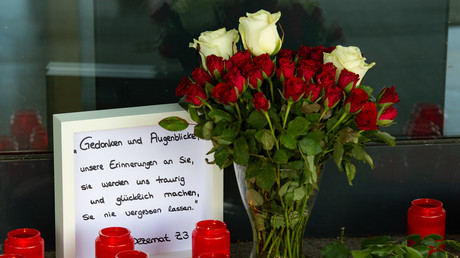 „Gedanken und Augenblicke,
unsere Erinnerungen an Sie,
sie werden uns traurig
und glücklich machen,
Sie nie vergessen lassen."
Z3